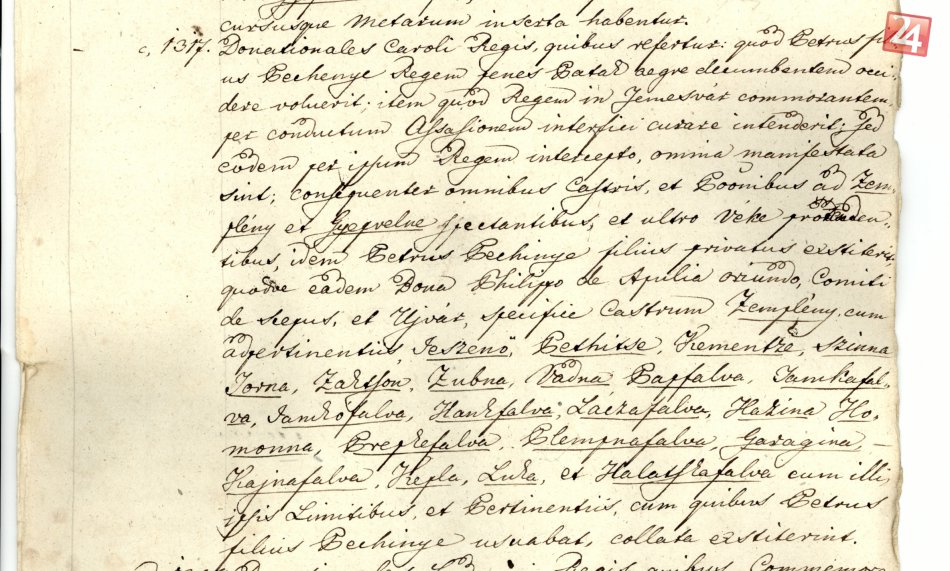 cursusque Metarum inserta habentur.
24
c, 1317. Donationales Caroli Regis, quibus refertur: quod Petrus fi-
us Pechenye Regem penes Patak aegre decumbentem occi-
dere voluerit; item quod Regem in Temesvár commorantem,
per conductum Assasionem interfici curare intenderit; sed
eodem per ipsum Regem intercepto, omnia manifestata
sint; consequenter omnibus Castris, et Bonibus ad Zem-
plény et Gyepvelne spectantibus, et ultro Véke
tibus, idem Petrus Pechinye filius privatus exstiterit,
quodve eadem Bona Philippo de Apulia oriundo, Comiti
de Scepus, et Ujvár, specifice Castrum Zemplény, cum
adpertinentiis, Jeszenö, Pethitse, Kementze, Szinna
Torna, Zaktson, Zubna, Vadna, Papfalva, Jamkafal-
va, Jankofalva, Hankfalva, Láczafalva, Hazina Ho-
monna, Prepkefalva, Plempnafalva, Garagina, –
Kajnafalva, Kepla, Luka, et Halatskafalva cum illis
ipsis Limitibus, et Pertinentiis, cum quibus Petrus
filius Pechinye usuabat, collata exstiterint.
Regis, quibus